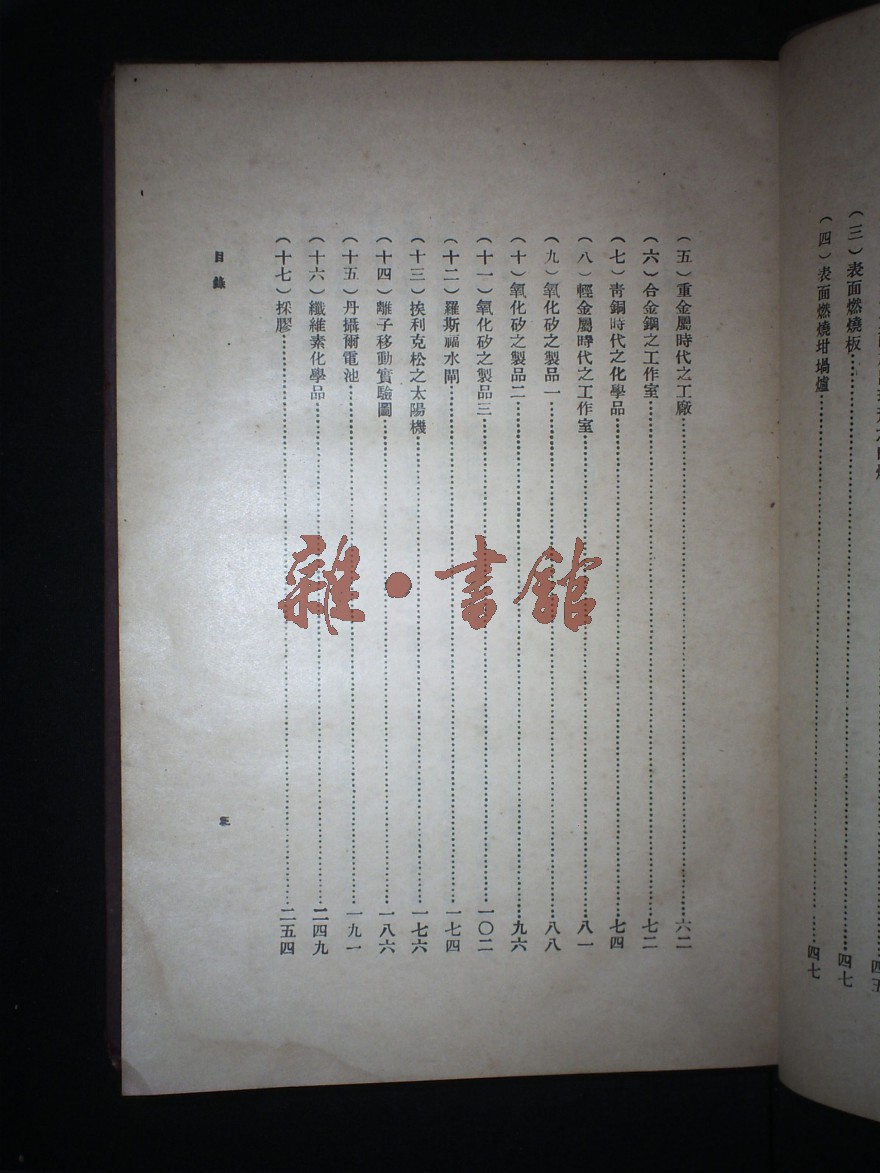 （三）表面燃燒板……四七
（四）表面燃燒坩堝爐……四七
（五）重金屬時代之工廠……六二
（六）合金鋼之工作室……七二
（七）青銅時代之化學品……七四
（八）輕金屬時代之工作室……八一
（九）氧化矽之製品一……八八
（十）氧化矽之製品二……九六
（十一）氧化矽之製品三……一〇二
（十二）羅斯福水閘……一七四
（十三）挨利克松之太陽機……一七六
（十四）離子移動實驗圖……一八六
（十五）丹攝爾電池……一九一
（十六）纖維素化學品……二四九
（十七）採膠……二五四
目錄
雜·書館